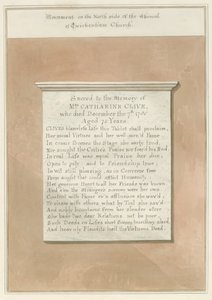 Monument on the North side of the Chancel
of Twickenham Church.
Sacred to the Memory of
Mrs. CATHARINE CLIVE,
who died December the 7th 1785.
Aged 72 Years.
CLIVE'S blameless life this Tablet shall proclaim,
Her moral Virtues and her well earn'd Fame.
In comic Scenes the Stage she early trod,
Nor sought the Critics Praise nor fear'd his Rod.
In real Life was equal Praise her due,
Open to pity and to Friendship true;
In wit still pleasing, as in Converse free
From aught that could afflict Humanity;
Her generous Heart to all her Friends was known
And e'en the Strangers sorrows were her own.
Content with Fame e'er affluence she wav'd
To share with others what by Toil she sav'd
And nobly bounteous from her slender store
She bade two dear Relations not be poor.
Such Deeds on Life's short Scenes true Glory shed
And heav'nly Plaudits hail the Virtuous Dead.